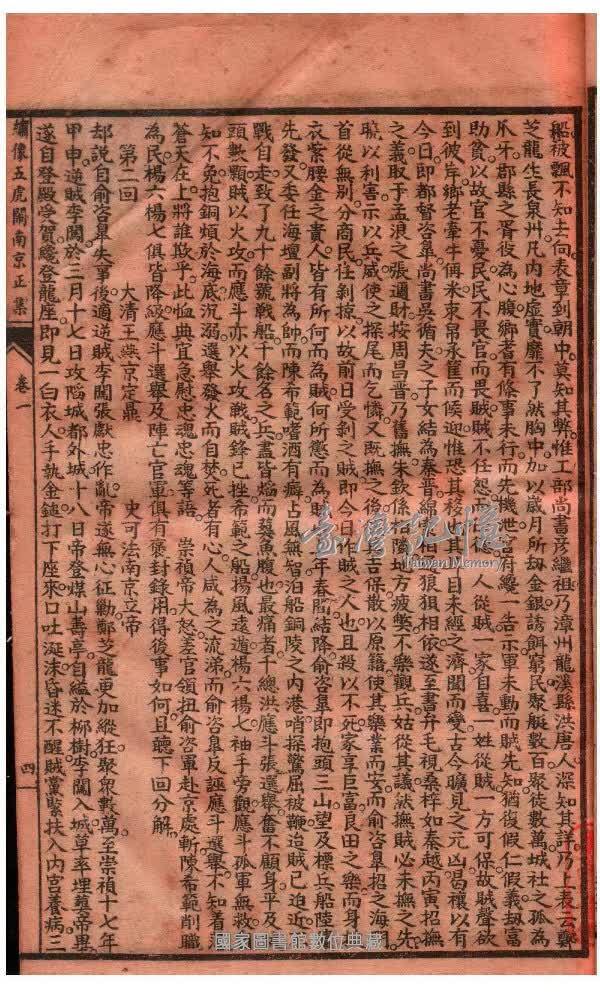 船被飄不知去向表章到朝中莫知其弊惟工部尚書彥繼祖乃漳州龍溪縣洪唐人深知其詳乃上表云鄭
芝龍生長泉州凡內地虛實靡不了然胸中加以歲月所刼金銀誘餌窮民聚艇數百聚徒數萬城社之孤為
爪牙郡縣之胥役為心腹鄉耆有條事未行而先機世官府纔一告示軍未動而賊先知猶復假仁假義刼富
助貧以故官不憂民民不畏官而畏賊賊不任怨而人從賊一家自喜一姓從賊一方可保故賊聲欲
到彼岸鄉老牽牛倆米衷帛永筐而候迎惟恐其移其目未經之濟闊而變古今曠見之元凶曷穰以有
今日即都督咨皐尚書吳循夫之子女結為秦晉綿相狼狽相依遂至書弁毛視桑梓如秦越丙寅招撫
之義取于孟浪之張迺財按周昌晉乃舊撫朱欽係隣地方疲獘不樂觀兵姑從其議然撫賊必未撫之先
曉以利害示以兵威使之搖尾而乞憐又既撫之後吉保散以原籍使其樂業而安而俞咨皐招之海
首從無別分商民住剝掠以故前日受剝之賊即今日作賊之人也且殺以不死家享巨富良田之樂而身
衣紫腰金之貴人皆有所何而為賊何所懲而為賊年春間結降俞咨皐即抱頭三山望及標兵船陸
先發又委任海壇副將為帥而陳希範嗜酒有癖占風無智泊船銅陵之內港哨探驚屈被鞭迨賊已迫近
戰自走致了九十餘號戰船千餘名之兵盡皆焰而葬魚腹也最痛者千總洪應斗張選舉奮不顧身平及
頭數顆賊以火攻而應斗亦以火攻戰賊鋒已挫希範之船揚風遠遁楊六楊七袖手旁觀應斗孤軍無救
知不免抱銅熕於海底沉溺選舉發火而自焚死者有心人咸為之流涕而俞咨皐反誣應斗選舉不知着
蒼天在上將誰欺乎此恤典宜急慰忠魂忠魂等語 崇禎帝大怒差官領扭俞咨軍赴京處斬陳希範削職
為民楊六楊七俱皆降級應斗選舉及陣亡官軍俱有褒封錄用得後事如何且聽下回分解
第二回 大清王燕京定鼎 史可法南京立帝
却說自俞咨皐失事後適逆賊李闖張獻忠作亂帝遂無心征勦鄭芝龍更加縱狂聚衆數萬至崇禎十七年
甲申逆賊李闖於三月十七日攻陷城都外城十八日帝登煤山壽亭自縊於柳樹李闖入城草率埋葬帝畢
遂自登殿受賀纔登龍座即見一白衣人手執金鎚打下座來口吐涎沫昏迷不醒賊黨緊扶入內宮養病三
繡像五虎鬧南京正集
卷一
四
臺灣記憶
Taiwan Memory
國家圖書館數位典藏